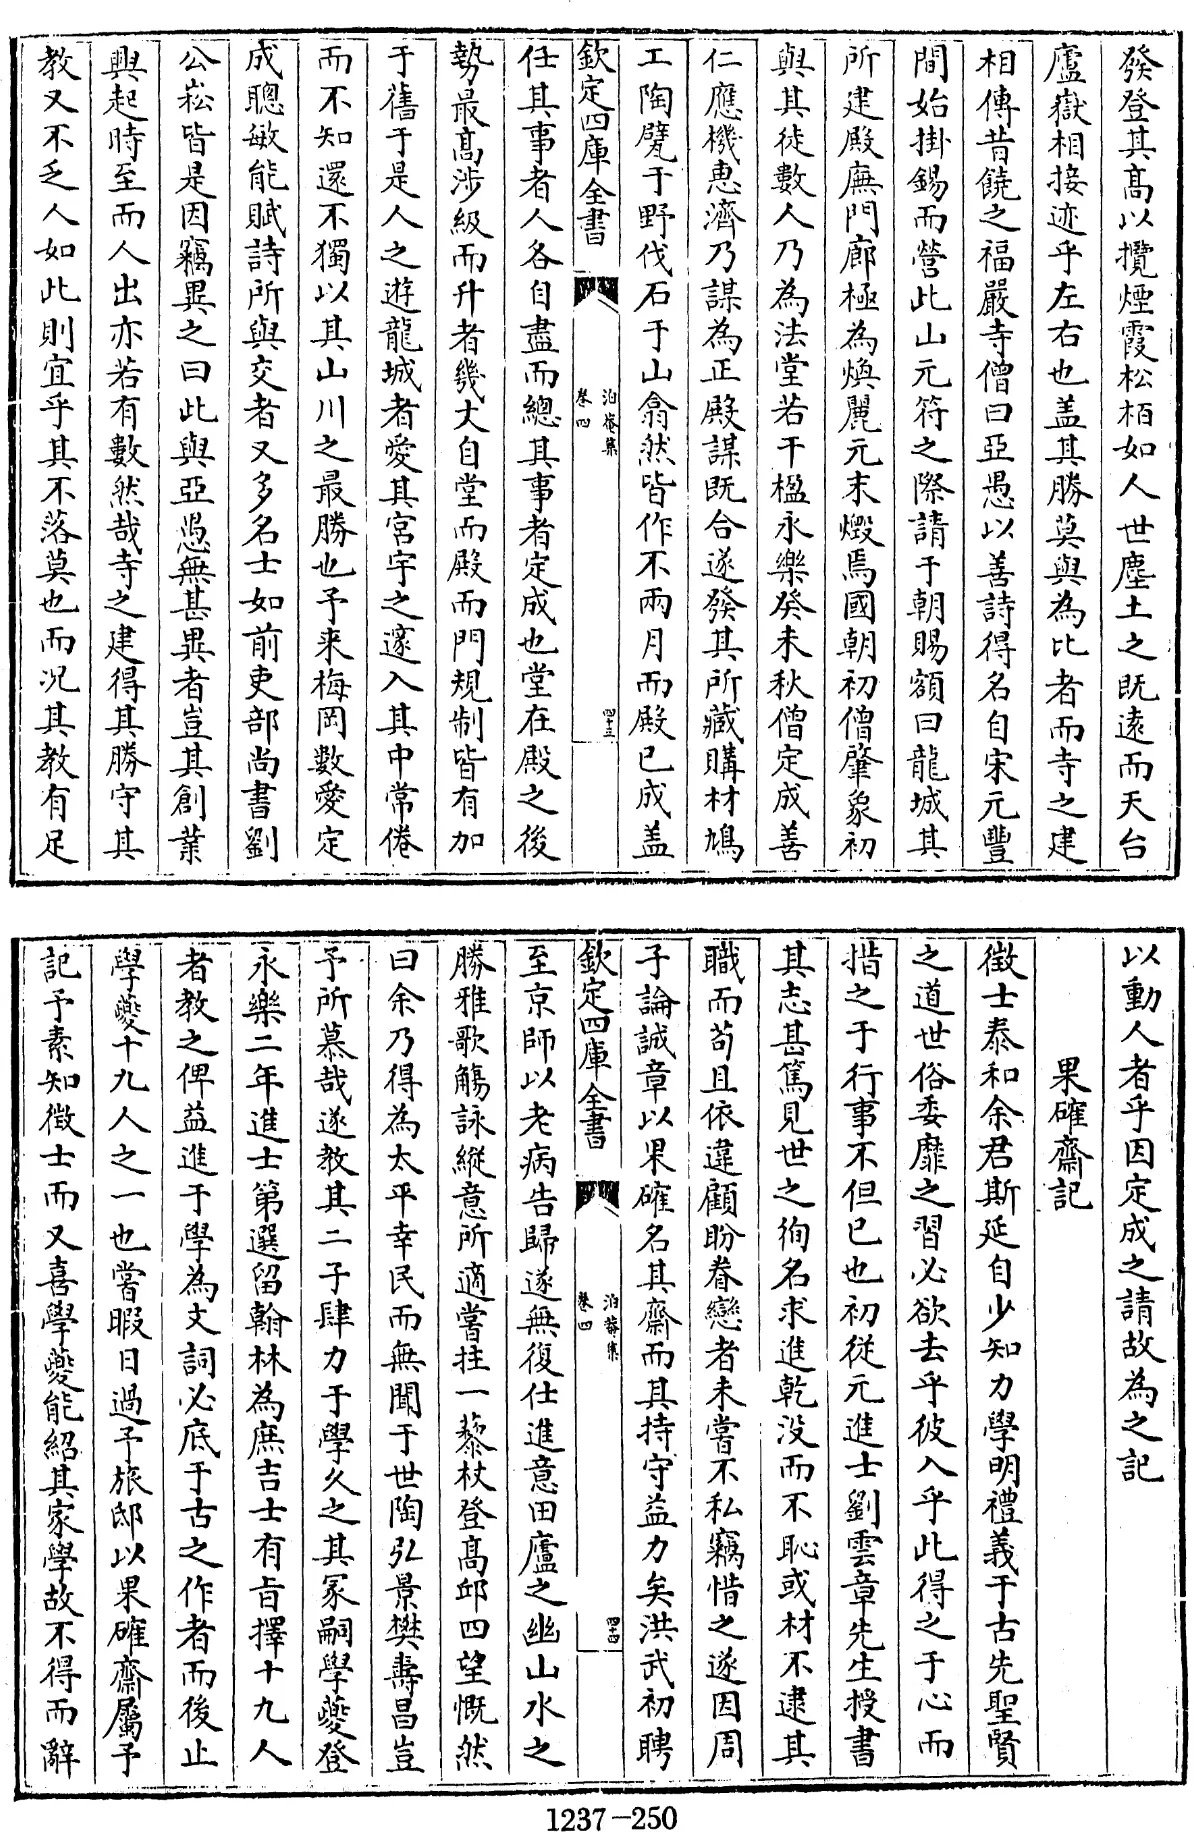 發登其髙以攬煙霞松栢如人世塵土之既逺而天台
廬嶽相接迹乎左右也盖其勝莫與為比者而寺之建
相傳昔饒之福嚴寺僧曰亞愚以善詩得名自宋元豐
間始掛錫而營此山元符之際請于朝賜額曰龍城其
所建殿廡門廊極為煥麗元末燬焉國朝初僧肇象初
與其徒數人乃為法堂若干楹永樂癸未秋僧定成善
仁應機惠濟乃謀為正殿謀既合遂發其所藏購材鳩
工陶甓于野伐石于山翕然皆作不兩月而殿已成盖
欽定四庫全書
泊菴集
卷四
四十三
任其事者人各自盡而總其事者定成也堂在殿之後
勢最髙涉級而升者幾丈自堂而殿而門規制皆有加
于舊于是人之遊龍城者愛其宫宇之邃入其中常倦
而不知還不獨以其山川之最勝也予来梅岡數愛定
成聰敏能賦詩所與交者又多名士如前吏部尚書劉
公崧皆是因竊異之曰此與亞愚無甚異者豈其創業
興起時至而人出亦若有數然哉寺之建得其勝守其
教又不乏人如此則宜乎其不落莫也而况其教有足
以動人者乎因定成之請故為之記
果確齋記
徴士泰和余君斯延自少知力學明禮義于古先聖賢
之道世俗委靡之習必欲去乎彼入乎此得之于心而
措之于行事不但已也初從元進士劉雲章先生授書
其志甚篤見世之徇名求進乾没而不恥或材不逮其
職而苟且依違顧盼眷戀者未嘗不私竊惜之遂因周
子論誠章以果確名其齋而其持守益力矣洪武初聘
欽定四庫全書
泊菴集
卷四
四十四
至京師以老病告歸遂無復仕進意田廬之幽山水之
勝雅歌觴詠縱意所適嘗拄一藜杖登髙邱四望慨然
曰余乃得為太平幸民而無聞于世陶弘景樊壽昌豈
予所慕哉遂教其二子肆力于學久之其冢嗣學夔登
永樂二年進士第選留翰林為庶吉士有㫖擇十九人
者教之俾益進于學為文詞必底于古之作者而後止
學夔十九人之一也嘗暇日過予旅邸以果確齋屬予
記予素知徴士而又喜學夔能紹其家學故不得而辭
1237-250